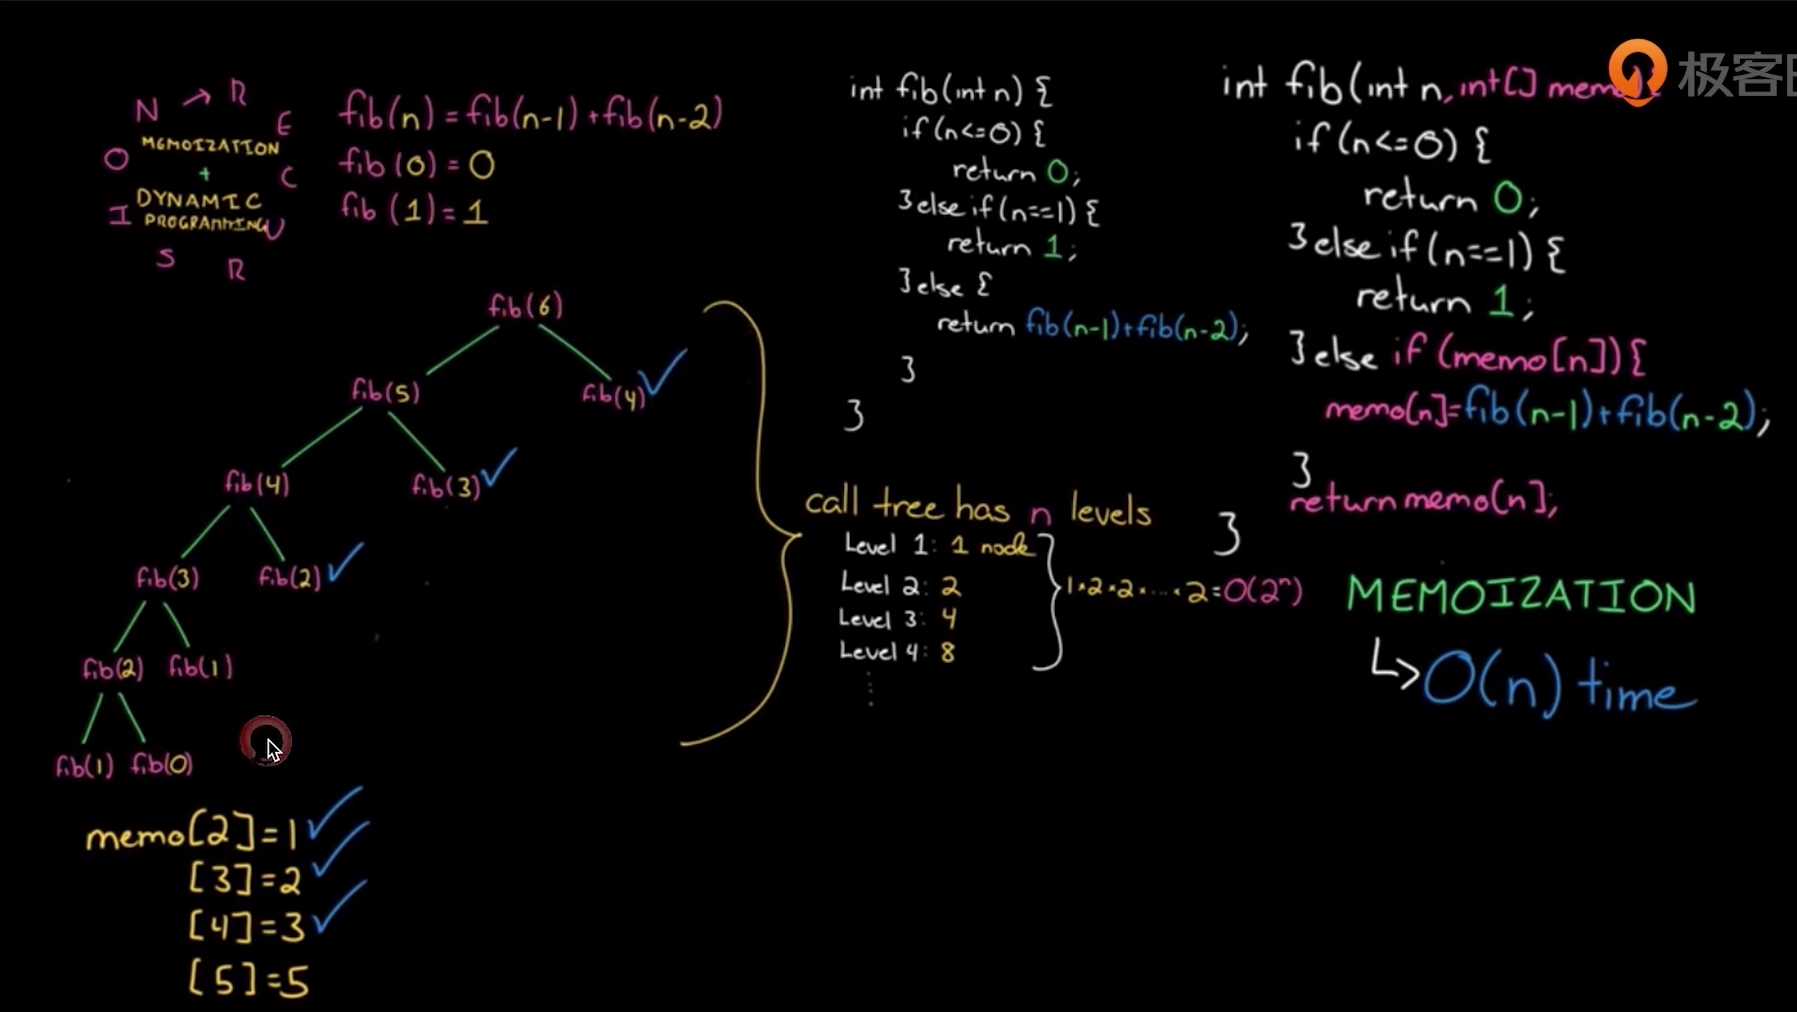 N → R
E
C
U
R
S
I
O
MEMOIZATION
+
DYNAMIC
PROGRAMMING
fib(n) = fib(n-1) + fib(n-2)
fib(0) = 0
fib(1) = 1
fib(6)
fib(5) fib(4)
fib(4) fib(3)
fib(3) fib(2)
fib(2) fib(1)
fib(1) fib(0)
memo[2]=1
[3]=2
[4]=3
[5]=5
int fib(int n) {
if (n<=0) {
return 0;
}else if(n==1) {
return 1;
}else {
return fib(n-1)+fib(n-2);
}
}
call tree has n levels
Level 1: 1 node
Level 2: 2
Level 3: 4
Level 4: 8
⋮
1*2*2*...*2=O(2ⁿ)
int fib(int n, int[] memo
if (n<=0) {
return 0;
}else if (n==1) {
return 1;
}else if (memo[n]) {
memo[n]=fib(n-1)+fib(n-2);
}
return memo[n];
}
MEMOIZATION
↳ O(n) time
极客